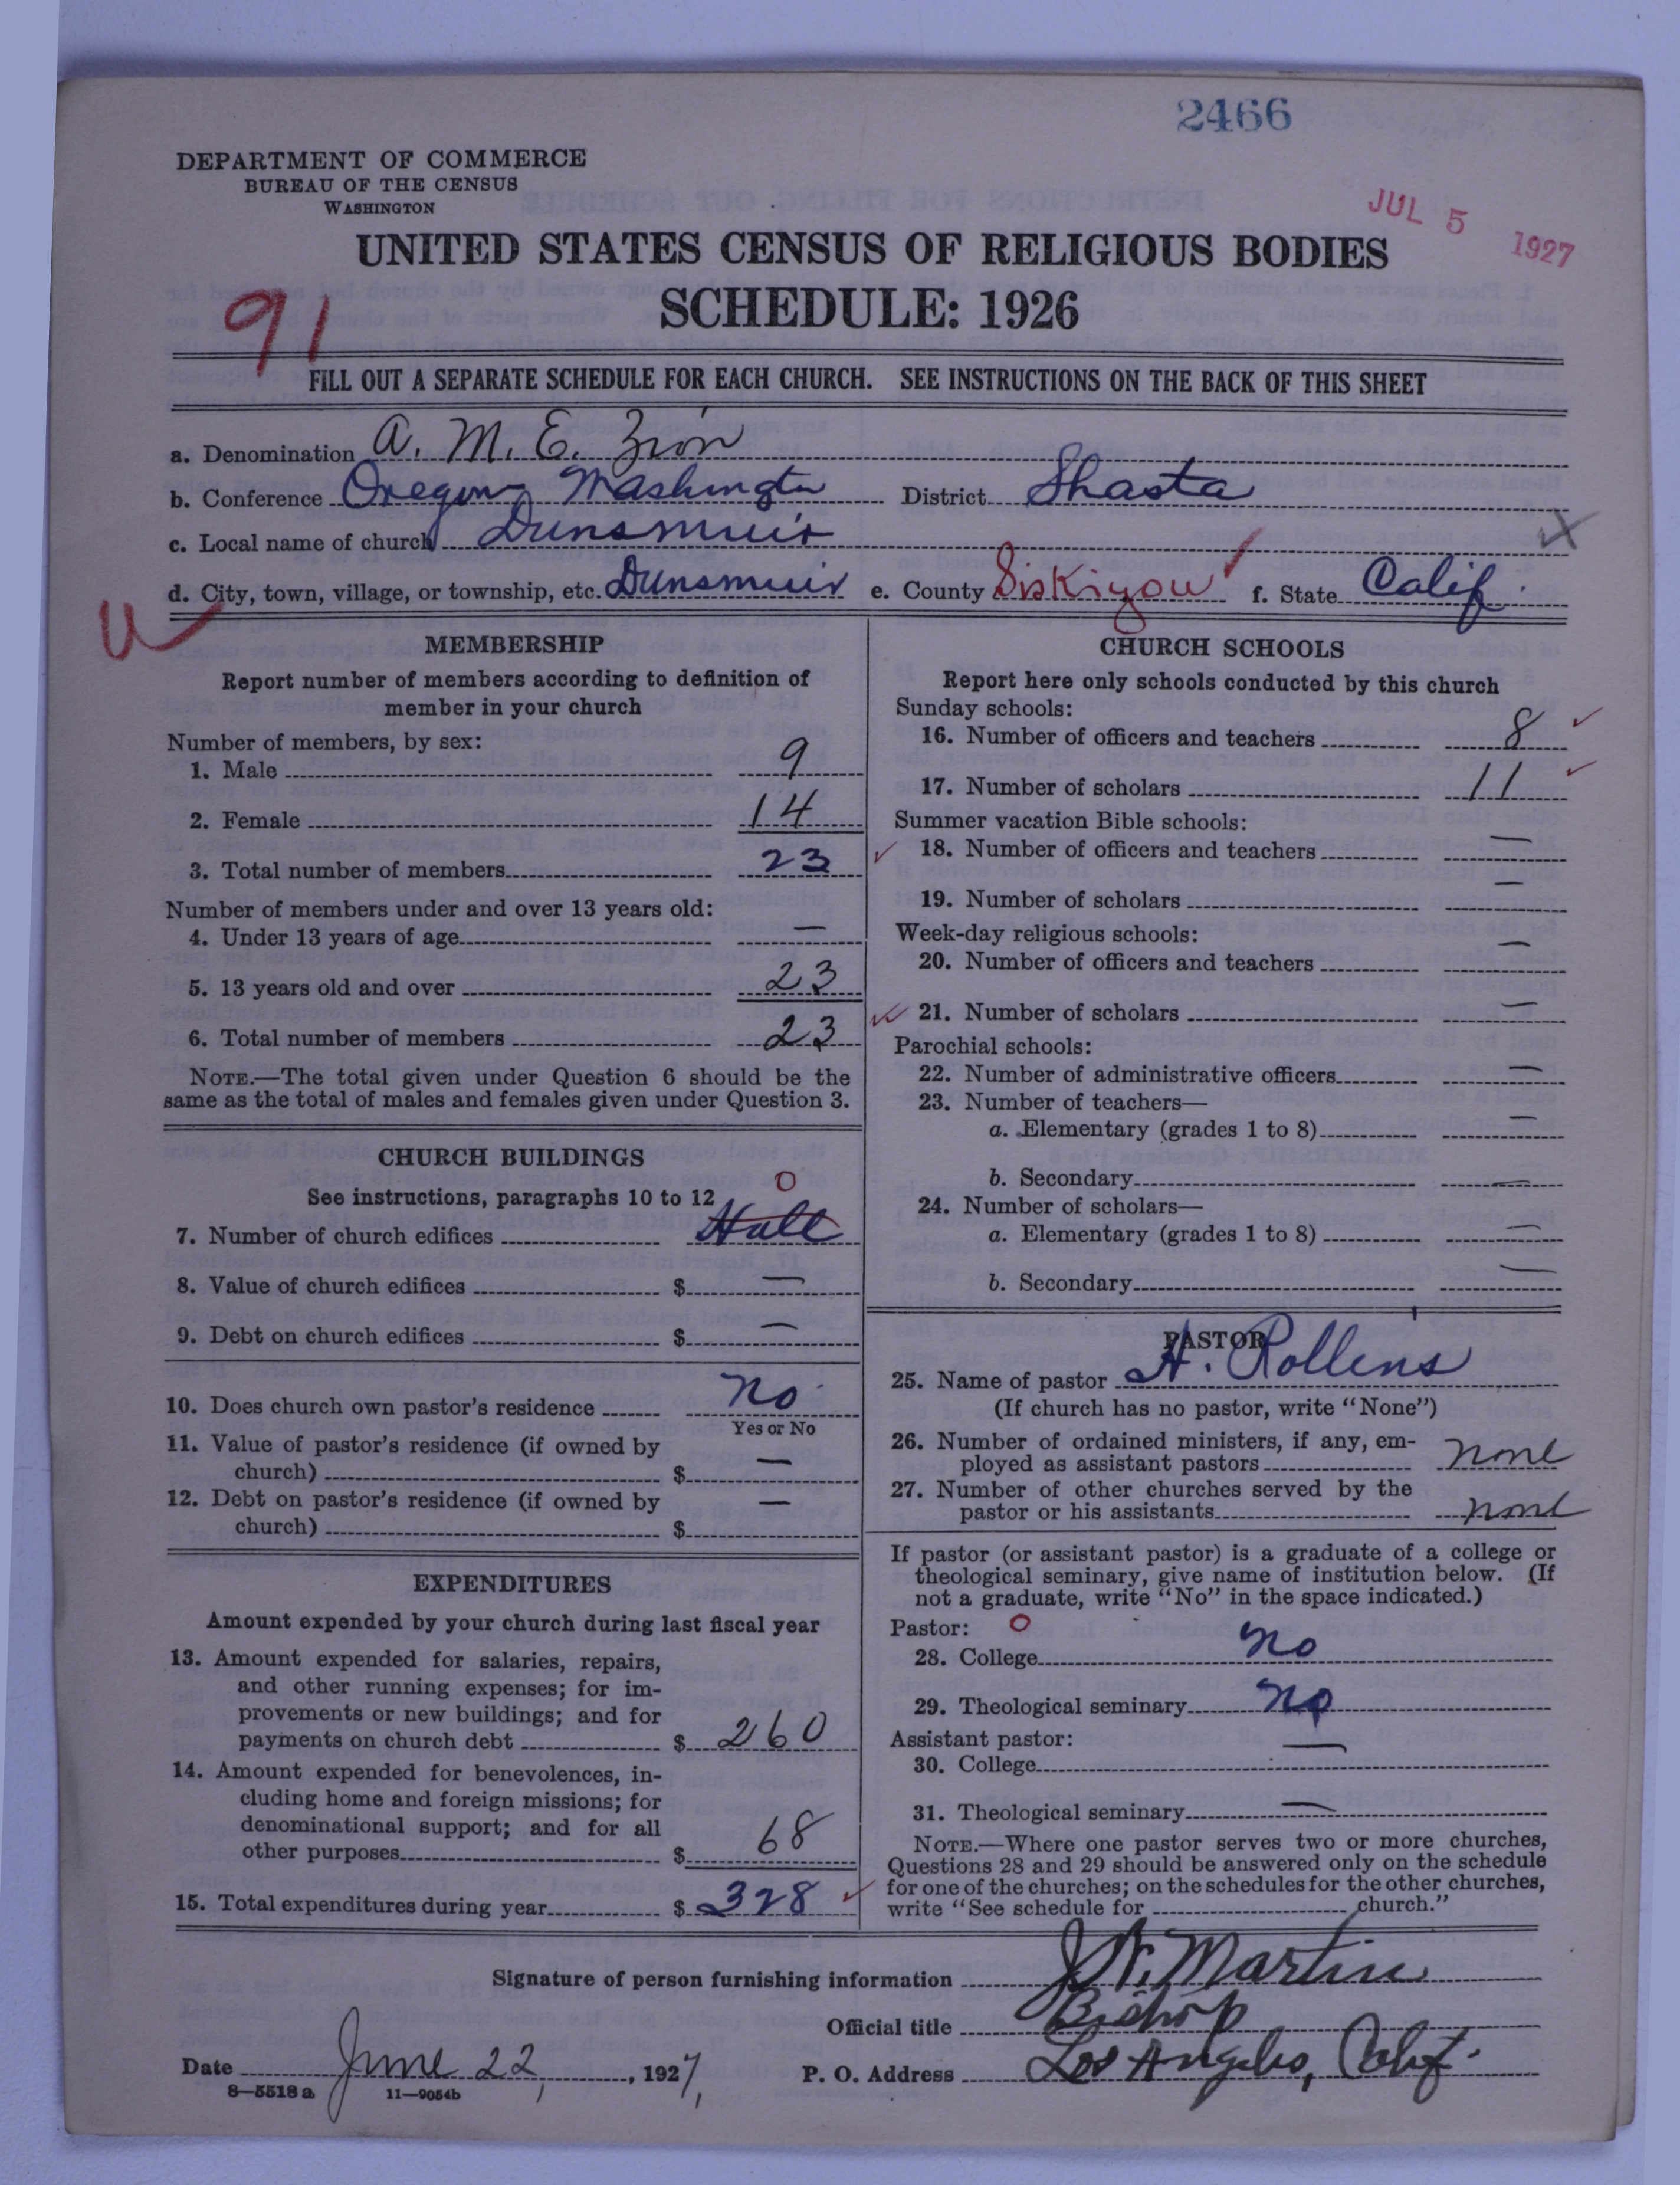 2466
DEPARTMENT OF COMMERCE
BUREAU OF THE CENSUS
WASHINGTON
JUL 5 1927
UNITED STATES CENSUS OF RELIGIOUS BODIES
SCHEDULE: 1926
91
FILL OUT A SEPARATE SCHEDULE FOR EACH CHURCH. SEE INSTRUCTIONS ON THE BACK OF THIS SHEET
a. Denomination A. M. E. Zion
b. Conference Oregon-Washington District Shasta
c. Local name of church Dunsmuir
d. City, town, village, or township, etc. Dunsmuir e. County Siskiyou f. State Calif.
MEMBERSHIP
Report number of members according to definition of
member in your church
Number of members, by sex:
1. Male 9
2. Female 14
3. Total number of members 23
Number of members under and over 13 years old:
4. Under 13 years of age —
5. 13 years old and over 23
6. Total number of members 23
NOTE.—The total given under Question 6 should be the
same as the total of males and females given under Question 3.
CHURCH BUILDINGS
See instructions, paragraphs 10 to 12 0
7. Number of church edifices Hall
8. Value of church edifices $ —
9. Debt on church edifices $ —
10. Does church own pastor's residence No
Yes or No
11. Value of pastor's residence (if owned by
church) $ —
12. Debt on pastor's residence (if owned by
church) $ —
EXPENDITURES
Amount expended by your church during last fiscal year
13. Amount expended for salaries, repairs,
and other running expenses; for im-
provements or new buildings; and for
payments on church debt $ 260
14. Amount expended for benevolences, in-
cluding home and foreign missions; for
denominational support; and for all
other purposes $ 68
15. Total expenditures during year $ 328
CHURCH SCHOOLS
Report here only schools conducted by this church
Sunday schools:
16. Number of officers and teachers 8
17. Number of scholars 11
Summer vacation Bible schools:
18. Number of officers and teachers —
19. Number of scholars —
Week-day religious schools:
20. Number of officers and teachers —
21. Number of scholars —
Parochial schools:
22. Number of administrative officers —
23. Number of teachers—
a. Elementary (grades 1 to 8) —
b. Secondary —
24. Number of scholars—
a. Elementary (grades 1 to 8) —
b. Secondary —
PASTOR
25. Name of pastor H. Rollins
(If church has no pastor, write "None")
26. Number of ordained ministers, if any, em-
ployed as assistant pastors none
27. Number of other churches served by the
pastor or his assistants none
If pastor (or assistant pastor) is a graduate of a college or
theological seminary, give name of institution below. (If
not a graduate, write "No" in the space indicated.)
Pastor: 0
28. College no
29. Theological seminary no
Assistant pastor:
30. College —
31. Theological seminary —
NOTE.—Where one pastor serves two or more churches,
Questions 28 and 29 should be answered only on the schedule
for one of the churches; on the schedules for the other churches,
write "See schedule for church."
Signature of person furnishing information J. W. Martin
Official title Bishop
Date June 22, 1927, P. O. Address Los Angeles, Calif.
8—5518 a 11—9054b